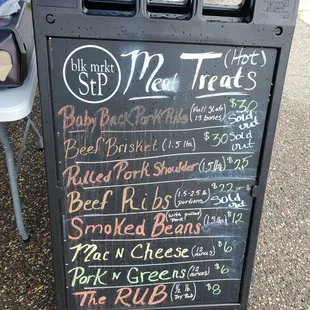 blk mrkt
StP
Meat Treats (Hot)
Baby Back Pork Ribs (Full Slab 13 bones) $30 Sold out
Beef Brisket (1.5 lb) $30 Sold out
Pulled Pork Shoulder (1.5 lb) $25
Beef Ribs (1.5-2.5 lb portions) $22 per lb Sold out
Smoked Beans (with pulled pork) (1.5 lbs) $12
Mac N Cheese (12 ounces) $6
Pork N Greens (12 ounces) $6
The RUB (1/2 lb Dry Rub) $8